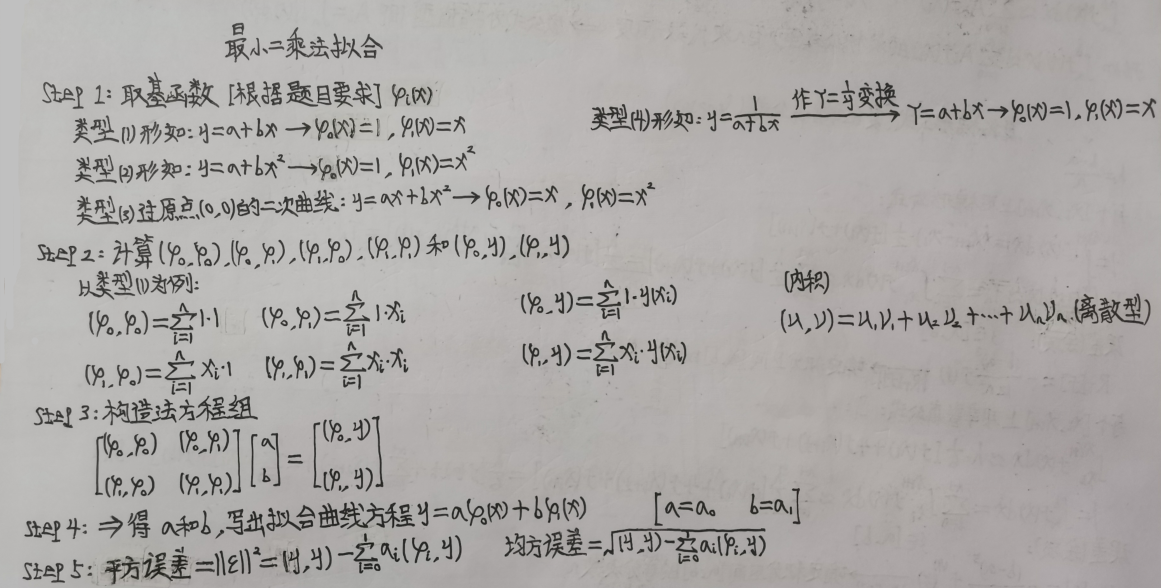 最小二乘法拟合
Step 1: 取基函数 [根据题目要求] φᵢ(x)
类型(1)形如: y=a+bx → φ₀(x)=1, φ₁(x)=x
类型(2)形如: y=a+bx² → φ₀(x)=1, φ₁(x)=x²
类型(3)过原点(0,0)的二次曲线: y=ax+bx² → φ₀(x)=x, φ₁(x)=x²
类型(4)形如: y=1/(a+bx) 作Y=1/y变换→ Y=a+bx → φ₀(x)=1, φ₁(x)=x
Step 2: 计算(φ₀,φ₀),(φ₀,φ₁),(φ₁,φ₀),(φ₁,φ₁)和(φ₀,y),(φ₁,y)
以类型(1)为例:
(φ₀,φ₀)=∑ⁿᵢ₌₁ 1·1 (φ₀,φ₁)=∑ⁿᵢ₌₁ 1·xᵢ (φ₀,y)=∑ⁿᵢ₌₁ 1·y(xᵢ)
(φ₁,φ₀)=∑ⁿᵢ₌₁ xᵢ·1 (φ₁,φ₁)=∑ⁿᵢ₌₁ xᵢ·xᵢ (φ₁,y)=∑ⁿᵢ₌₁ xᵢ·y(xᵢ)
(内积)
(u,v)=u₁v₁+u₂v₂+…+uₙvₙ (离散型)
Step 3: 构造法方程组
[(φ₀,φ₀) (φ₀,φ₁)] [a] = [(φ₀,y)]
[(φ₁,φ₀) (φ₁,φ₁)] [b] [(φ₁,y)]
Step 4: ⇒得 a和b, 写出拟合曲线方程 y=aφ₀(x)+bφ₁(x) [a=a₀ b=a₁]
Step 5: 平方误差=||ε||²=(y,y)-∑¹ᵢ₌₀ aᵢ(φᵢ,y) 均方误差=√((y,y)-∑¹ᵢ₌₀ aᵢ(φᵢ,y))